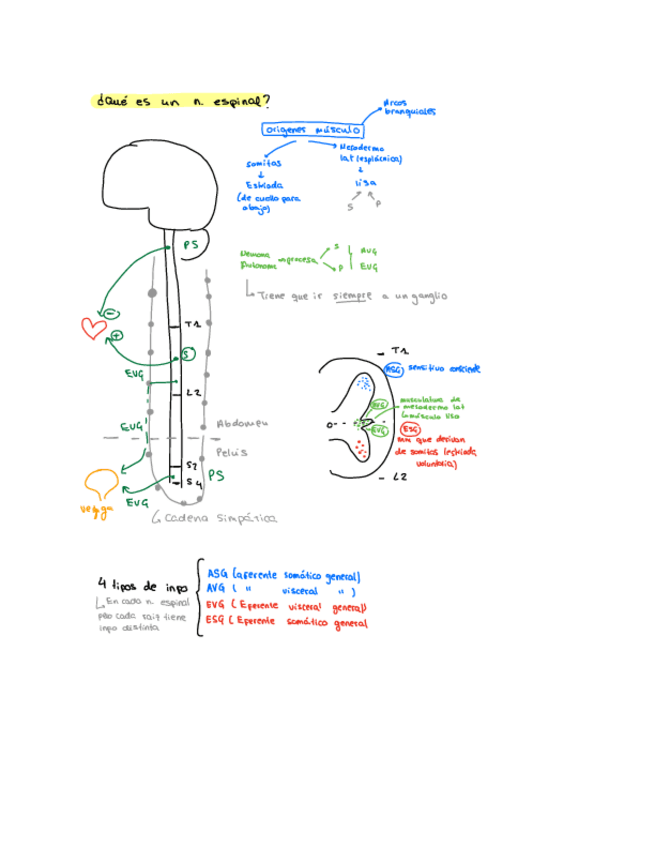 ¿Qué es un n. espinal?
Arcos
branquiales
orígenes músculo
somitas
Estriada
(de cuello para
abajo)
Mesodermo
lat (esplácnica)
lisa
S P
PS
Neurona
Autónoma → procesa
S
P
AVG
EVG
Tiene que ir siempre a un ganglio
−
+
T1
S
EVG
L2
EVG
Abdomen
Pelvis
S2
S4
PS
EVG
vejiga
Cadena Simpática
T1
ASG sensitivo
AVG
musculatura de
mesodermo lat
músculo liso
EVG
ESG
que derivan
de somitas (estriada
voluntaria)
L2
4 tipos de info
En cada n. espinal
cada tiene
info distinta
ASG (aferente somático general)
AVG ( " visceral " )
EVG ( Eferente visceral general)
ESG ( Eferente somático general